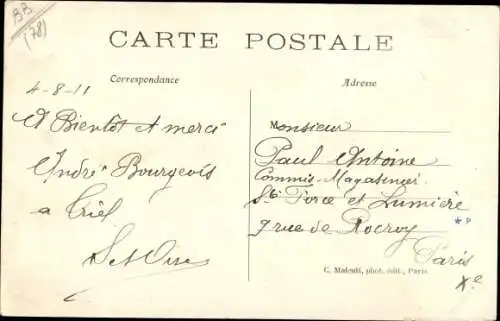 BB
(78)
CARTE POSTALE
Correspondance
Adresse
4-8-11
A Bientôt et merci
André Bourgeois
a Triel
S et Oise
Monsieur
Paul Antoine
Commis-Magasinier
Sté Force et Lumière
9 rue de Rocroy
Paris
Xe
C. Malcuit, phot. édit., Paris